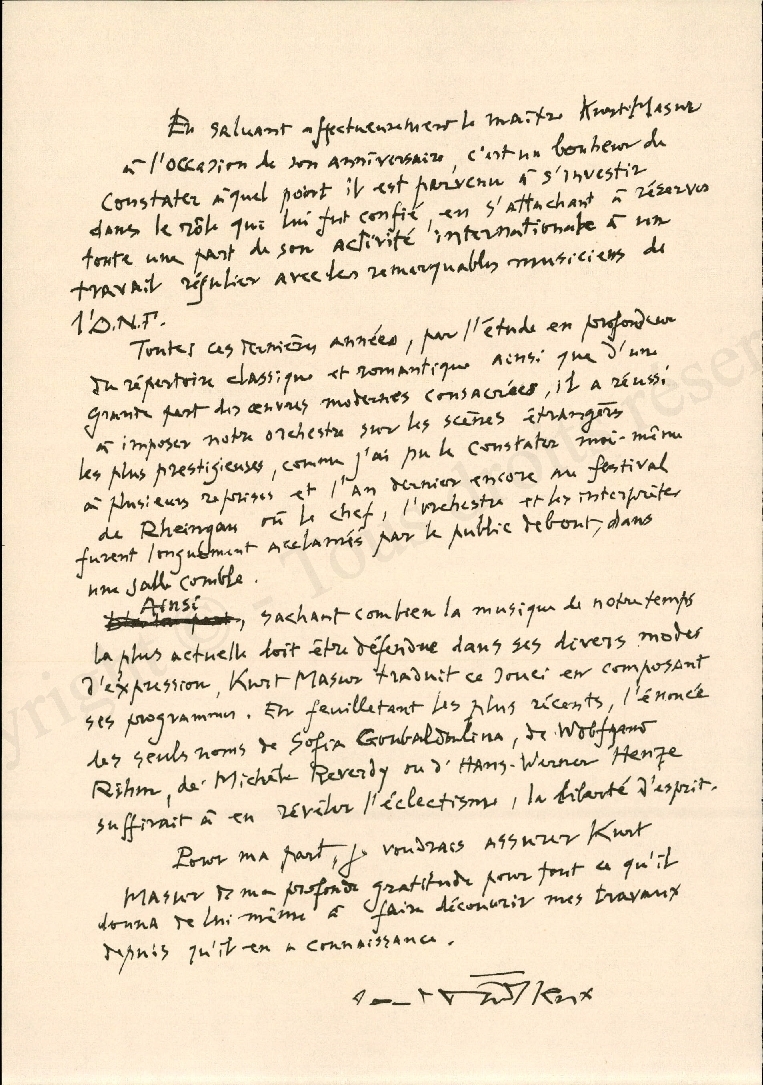 En saluant affectueusement le maître Kurt Masur
à l'occasion de son anniversaire, c'est un bonheur de
constater à quel point il est parvenu à s'investir
dans le rôle qui lui fut confié, en s'attachant à réserver
toute une part de son activité internationale à un
travail régulier avec les remarquables musiciens de
l'O.N.F.
Toutes ces dernières années, par l'étude en profondeur
du répertoire classique et romantique ainsi que d'une
grande part des œuvres modernes consacrées, il a réussi
à imposer notre orchestre sur les scènes étrangères
les plus prestigieuses, comme j'ai pu le constater moi-même
à plusieurs reprises et l'an dernier encore au festival
de Rheingau où le chef, l'orchestre et les interprètes
furent longuement acclamés par le public debout, dans
une salle comble.
Ainsi
, sachant combien la musique de notre temps
la plus actuelle doit être défendue dans ses divers modes
d'expression, Kurt Masur traduit ce souci en composant
ses programmes. En feuilletant les plus récents, l'énoncé
des seuls noms de Sofia Goubaldulina, de Wolfgang
Rihm, de Michèle Reverdy ou d'Hans-Werner Henze
suffirait à en révéler l'éclectisme, la liberté d'esprit.
Pour ma part, je voudrais assurer Kurt
Masur de ma profonde gratitude pour tout ce qu'il
donna de lui-même à faire découvrir mes travaux
depuis qu'il en a connaissance.